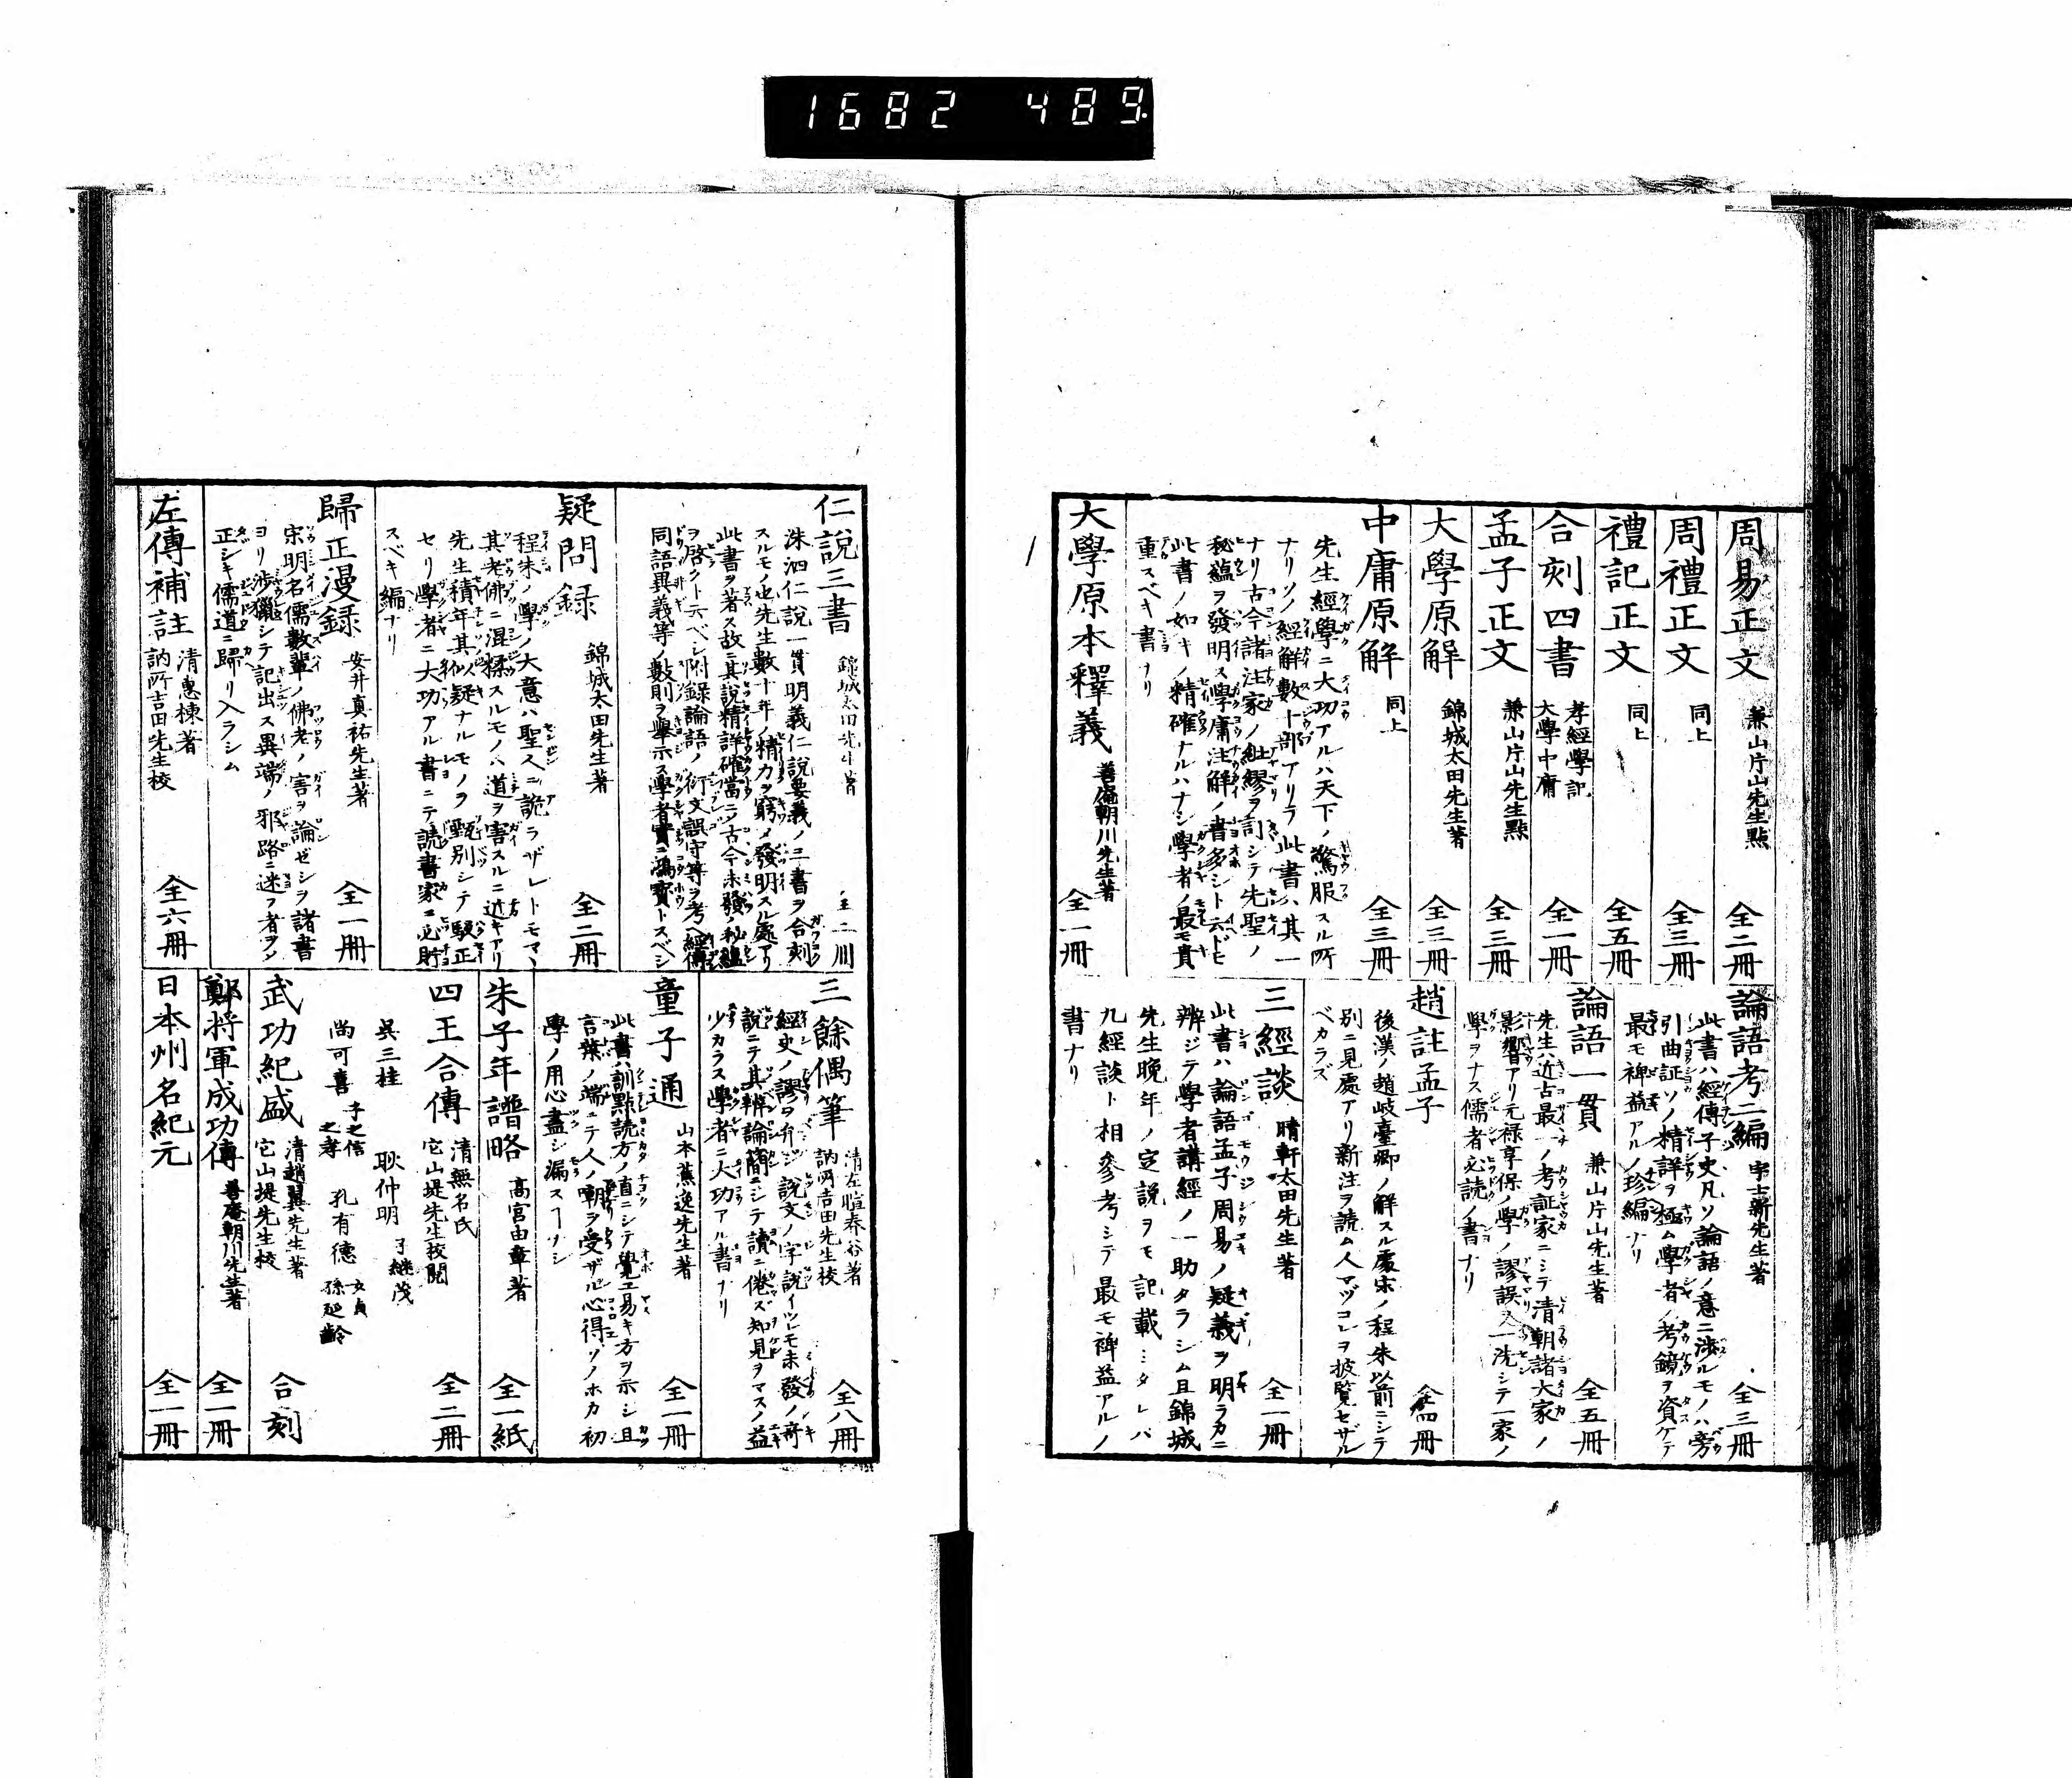 1682 489
周易正文 兼山片山先生點 全二冊
周禮正文 同上 全三冊
禮記正文 同上 全五冊
合刻四書 孝經學記 大學中庸 全一冊
孟子正文 兼山片山先生點 全三冊
大學原解 錦城太田先生著 全三冊
中庸原解 同上 全三冊
先生經學ニ大功アルハ天下ノ驚服スル所
ナリソノ經解數十部アリテ此書ハ其一
ナリ古今諸注家ノ紕繆ヲ訂シテ先聖ノ
秘蘊ヲ發明ス學庸注解ノ書多シト云ドモ
此書ノ如キノ精確ナルハナシ學者ノ最モ貴
重スベキ書ナリ
大學原本釋義 善庵朝川先生著 全一冊
論語考二編 宇士新先生著 全三冊
此書ハ經傳子史凡ソ論語ノ意ニ渉ルモノハ旁
引曲証ソノ精詳ヲ極ム學者ノ考鏡ヲ資ケテ
最モ裨益アルノ珍編ナリ
論語一貫 兼山片山先生著 全五冊
先生ハ近古最一ノ考証家ニシテ清朝諸大家ノ
影響アリ元禄享保ノ學ノ謬誤ヲ一洗シテ一家ノ
學ヲナス儒者必読ノ書ナリ
趙註孟子 全四冊
後漢ノ趙岐臺卿ノ解スル處宋ノ程朱以前ニシテ
別ニ見處アリ新注ヲ読ム人マヅコレヲ披覧セザル
ベカラズ
三經談 晴軒太田先生著 全一冊
此書ハ論語孟子周易ノ疑義ヲ明ラカニ
辨ジテ學者講經ノ一助タラシム且錦城
先生晩年ノ定説ヲモ記載シタレバ
九經談ト相參考シテ最モ裨益アルノ
書ナリ
仁說三書 錦城太田先生著 全二冊
洙泗仁説一貫明義仁説要義ノ三書ヲ合刻
スルモノ也先生數十年ノ精力ヲ窮メ發明スル處アリ
此書ヲ著ス故ニ其説精詳確當ニシテ古今未發ノ秘蘊
ヲ啓クト云ベシ附録論語ノ衍文誤字等ヲ考ヘ經傳
同語異義等ノ數則ヲ擧示ス學者實ニ鴻寳トスベシ
疑問録 錦城太田先生著 全二冊
程朱ノ學ノ大意ハ聖人ニ詭ラザレトモマヽ
其老佛ニ混揉スルモノハ道ヲ害スルニ近キアリ
先生積年其似疑ナルモノヲ甄別シテ駁正
セリ學者ニ大功アル書ニテ読書家ニ必貯
スベキ編ナリ
歸正漫録 安井真祐先生著 全一冊
宋明名儒數輩ノ佛老ノ害ヲ論ゼシヲ諸書
ヨリ渉獵シテ記出ス異端ノ邪路ニ迷フ者ヲシ
正シキ儒道ニ歸リ入ラシム
左傳補註 清惠棟著 訥所吉田先生校 全六冊
三餘偶筆 清左暄春谷著 訥所吉田先生校 全八冊
經史ノ謬ヲ弁ジ説文ノ字説イツレモ未發ノ奇
說ニテ其辨論簡ニシテ讀ニ倦ズ知見ヲマスノ益
少カラス學者ニ大功アル書ナリ
童子通 山本蕉逸先生著 全一冊
此書ハ訓點読方ノ直ニシテ覺エ易キ方ヲ示シ且
言葉ノ端ニテ人ノ嘲ヲ受ザル心得ソノホカ初
學ノ用心盡シ漏スヿナシ
朱子年譜略 高宮由章著 全一紙
四王合傳 清無名氏 它山堤先生校閲 全二冊
呉三桂 耿仲明 子継茂
尚可喜 子之信 之孝 孔有徳 女貞 孫延齡
武功紀盛 清趙翼先生著 它山堤先生校 合刻
鄭將軍成功傳 善庵朝川先生著 全一冊
日本州名紀元 全一冊